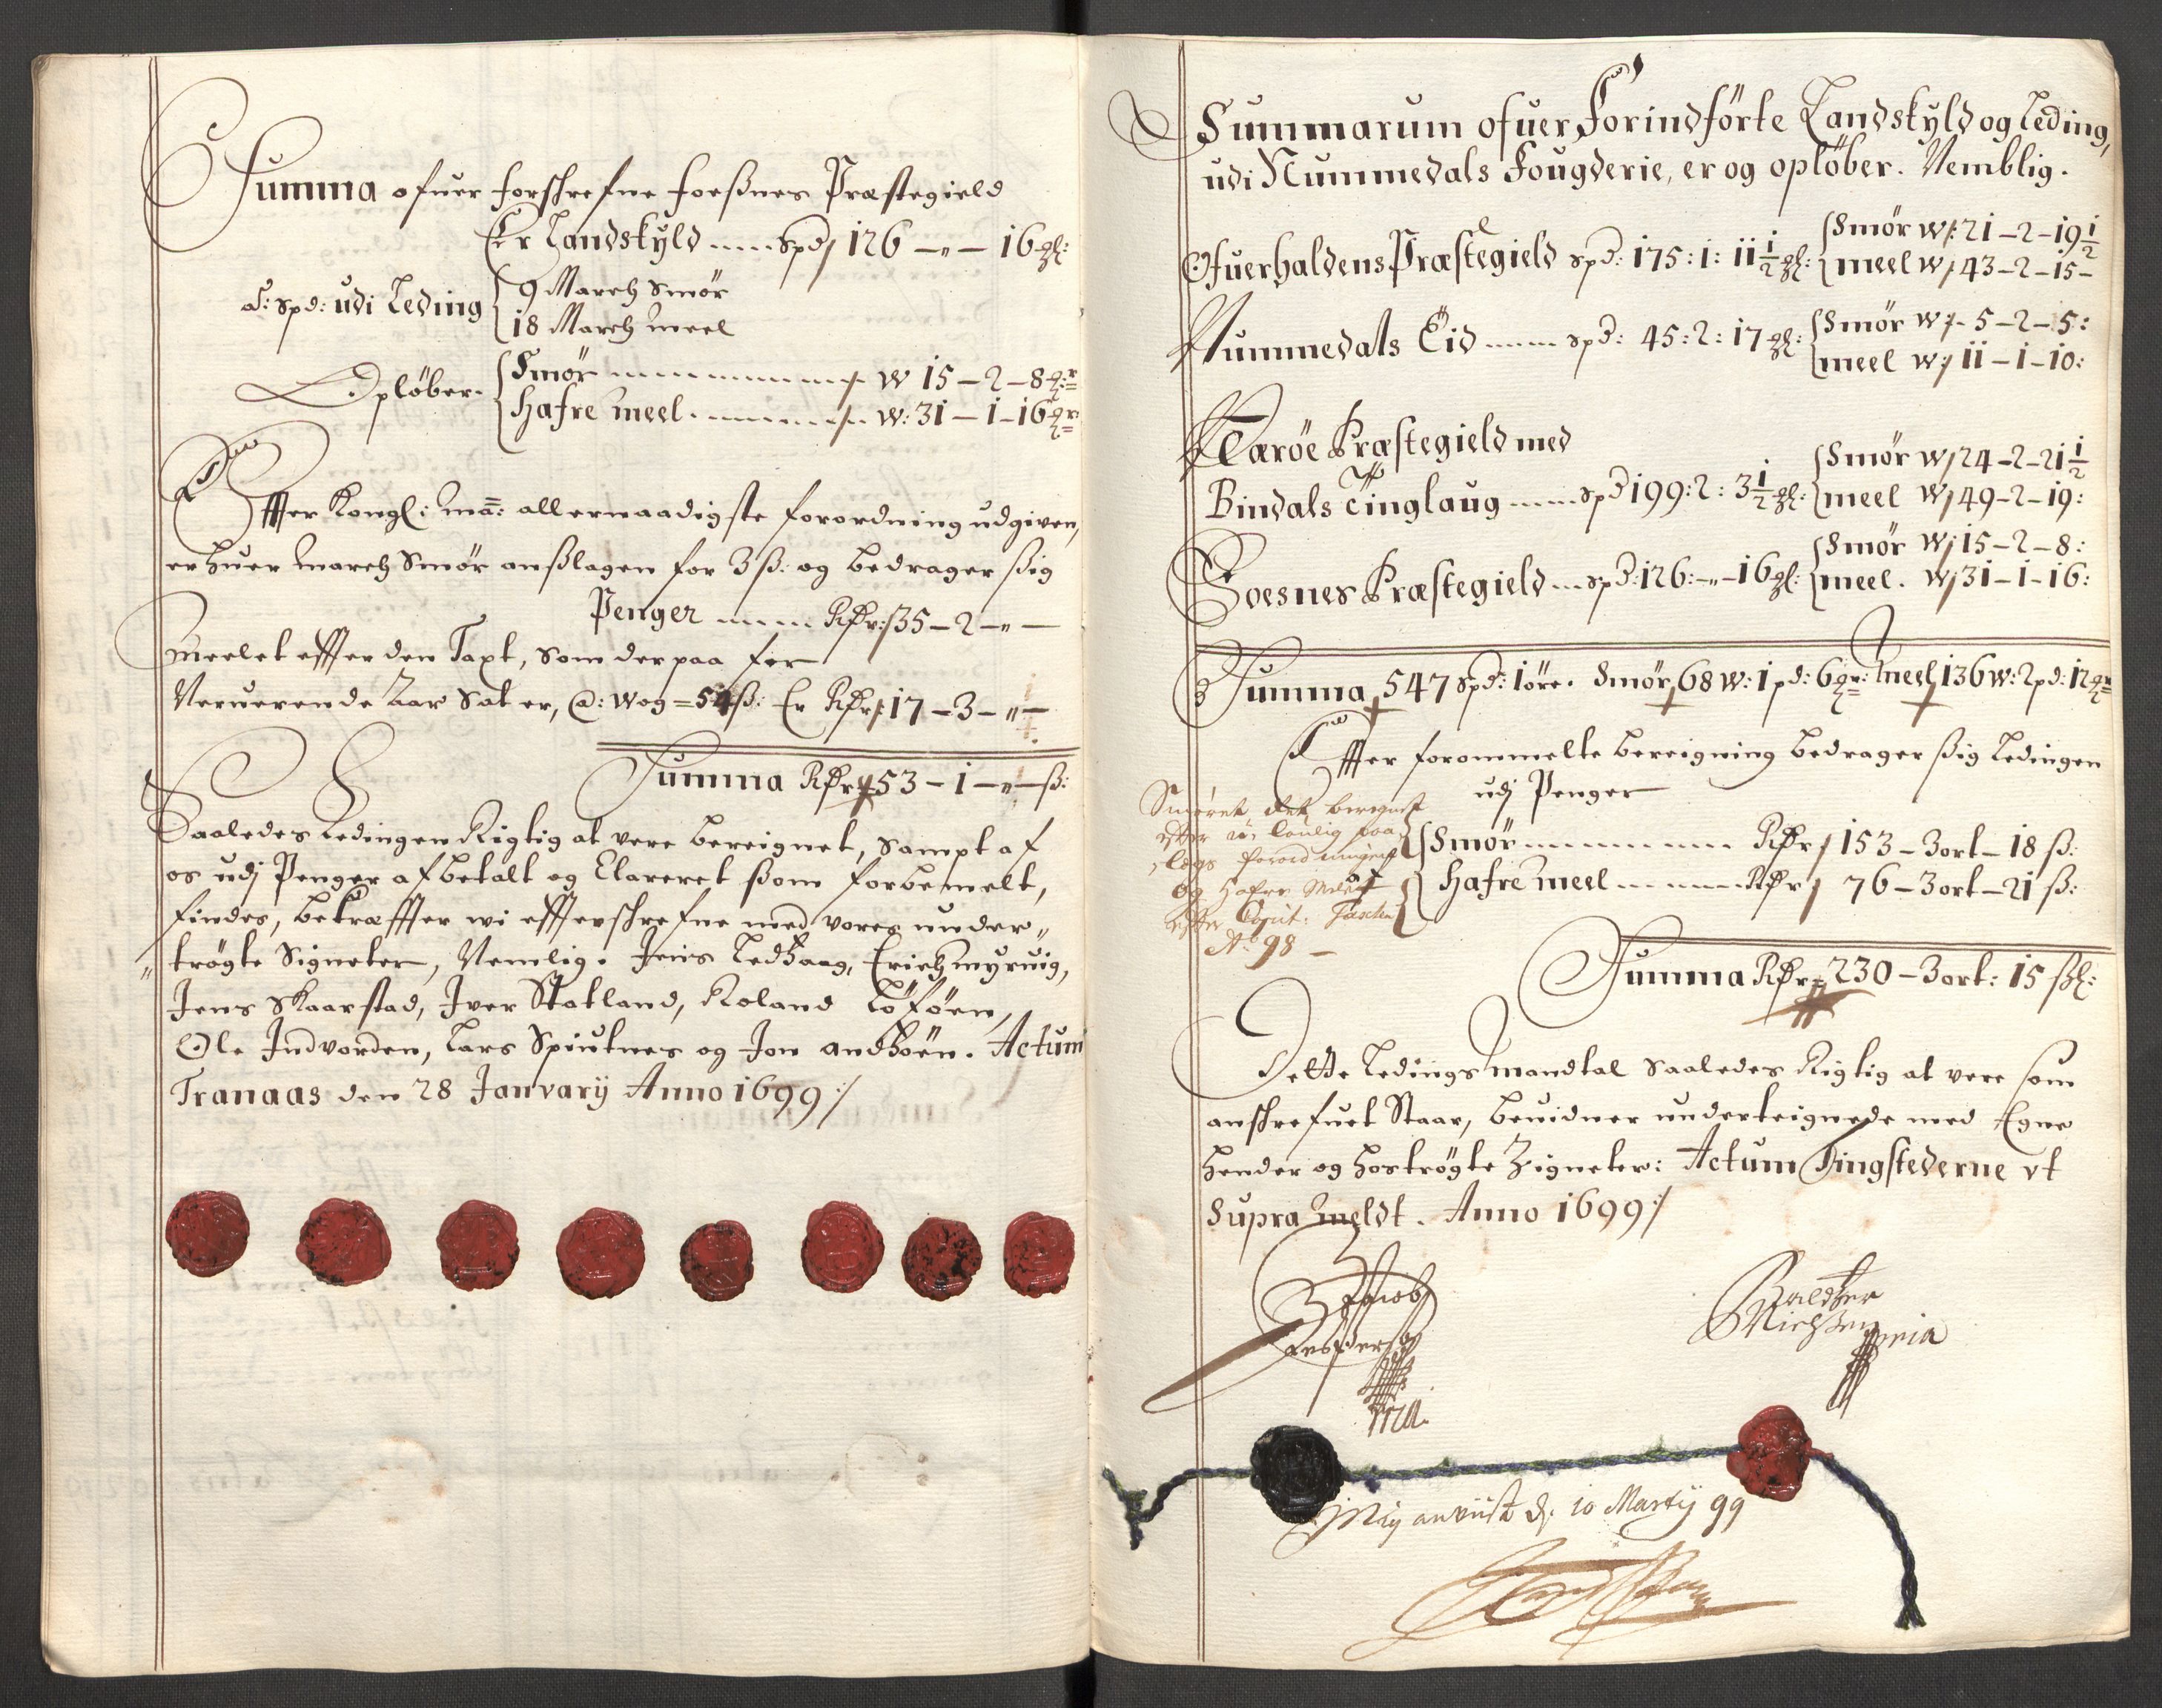 Summa ofuer forschrefne foeßnes Præstegield
Er Landskyld ---- Spd 126 -"- 16 ȝl:
a: Spd: udi Leding { 9 March Smör
18 March meel
Opløber { Smör ---- W 15 - 2 - 8 ȝr
Hafre meel ---- W: 31 - 1 - 16 ȝr
Effter Kongl: Ma: allernaadigste forordning udgiven,
er huer march Smör anßlagen for 3 ß: og bedrager ßig
Penger ---- Rdr: 35 - 2 -"-
Meelet effter den Taxt, som derpaa for
Neruerende Aar Sat er, @: Wog = 54 ß: Er Rdr 17 - 3 - "-
Summa Rdr 53 - 1 -"- ß:
Saaledes Ledingen Rigtig at vere bereignet, sampt af
os udj Penger afbetalt og Clareret ßom forbemelt,
findes, bekræffter wi effterschrefne med vores under„
„trögte Signeter, Nemlig. Jens Ledhaag, Erich myruig,
Jens Skaarstad, Iver Statland, Roland Löföen,
Ole Indvorden, Lars Spiutnes og Jon andhoën. Actum
Tranaas den 28 Janvarij Anno 1699 :/
Summarum ofuer Forindförte Landskyld og Leding,
udi Nummedals Fougderie, er og oplöber. Nemblig.
Ofuerhaldens Præstegield spd: 175: 1: 11 1/2 ȝl: { Smör W: 21 - 2 - 19 1/2
meel W 43 - 2 - 15 -
Nummedals Eid ---- spd: 45: 2: 17 ȝl: { Smör W 5 - 2 - 5:
meel W 11 - 1 - 10:
Nærøe Præstegield med
Bindals Tinglaug ---- spd 199: 2: 3 1/2 ȝl: { Smör W 24 - 2 - 21 1/2
meel W 49 - 2 - 19:
Foesnes Præstegield ---- spd: 126: -"- 16 ȝl: { Smör W 15 - 2 - 8:
meel. W 31 - 1 - 16:
Summa 547 spd: 1 öre. Smör 68 W: 1 pd: 6 ȝr: Meel 136 W: 2 pd: 12 ȝr
Effter forommelte bereigning bedrager ßig Ledingen
udj Penger
Smöret er beregnet
efter
forordningen
og Hafre Melet
efter
Ao 98 -
{ Smör ---- Rdr 153 - 3 ort - 18 ß:
Hafre meel ---- Rdr 76 - 3 ort - 21 ß:
Summa Rdr 230 - 3 ort: 15 ßl:
Dette Ledings Mandtal Saaledes Rigtig at vere som
anschrefuet Staar, beuidner underteignede med Egne
hender og hoströgte Zigneter: Actum Tingstederne vt
Supra meldt. Anno 1699 :/
Jacob
Baldtzer
Mig anviist d. 10 Martij 99